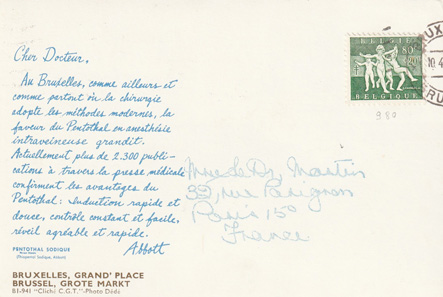 Cher Docteur,
Au Bruxelles, comme ailleurs et
comme partout où la chirurgie
adopte les méthodes modernes, la
faveur du Pentothal en anesthésie
intraveineuse grandit.
Actuellement plus de 2.300 publi-
cations à travers la presse médicale
confirment les avantages du
Pentothal : Induction rapide et
douce, contrôle constant et facile,
réveil agréable et rapide.
Abbott
PENTOTHAL SODIQUE
(Thiopental Sodique, Abbott)
BRUXELLES, GRAND' PLACE
BRUSSEL, GROTE MARKT
81-941 "Cliché C.G.T."-Photo Dédé
BELGIE
80c
+20c
BELGIQUE
980
Mme le Dr. Martin
39, rue
Paris 15°
France